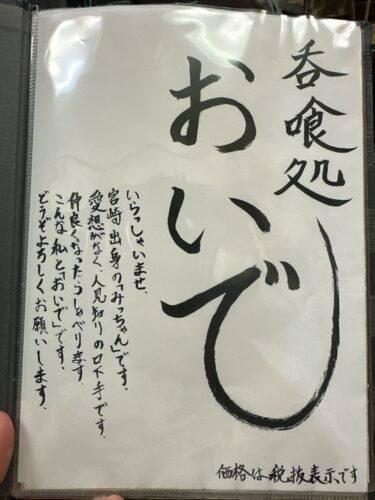 呑喰処
おいで
いらっしゃいませ、
宮崎出身の「みっちゃん」です。
愛想がなく、人見知りの口下手です。
仲良くなったらしゃべります
こんな私と「おいで」です。
どうぞよろしくお願いします。
価格は税抜表示です